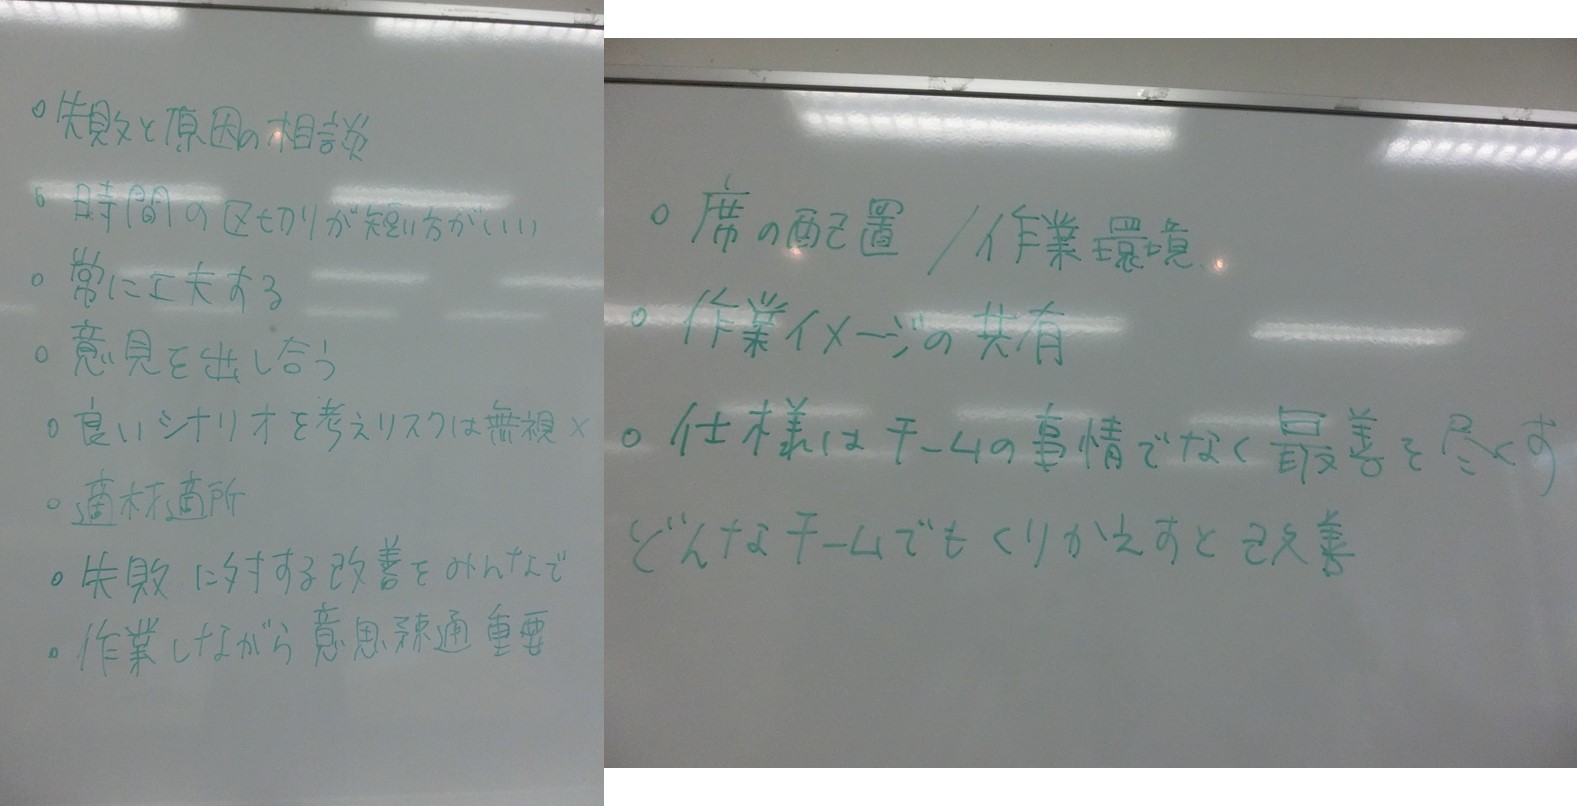 ○失敗と原因の相談
○時間の区切りが短い方がいい
○常に工夫する
○意見を出し合う
○良いシナリオを考えリスクは無視×
○適材適所
○失敗に対する改善をみんなで
○作業しながら意思疎通重要
○席の配置/作業環境
○作業イメージの共有
○仕様はチームの事情でなく最善を尽くす
どんなチームでもくりかえすと改善